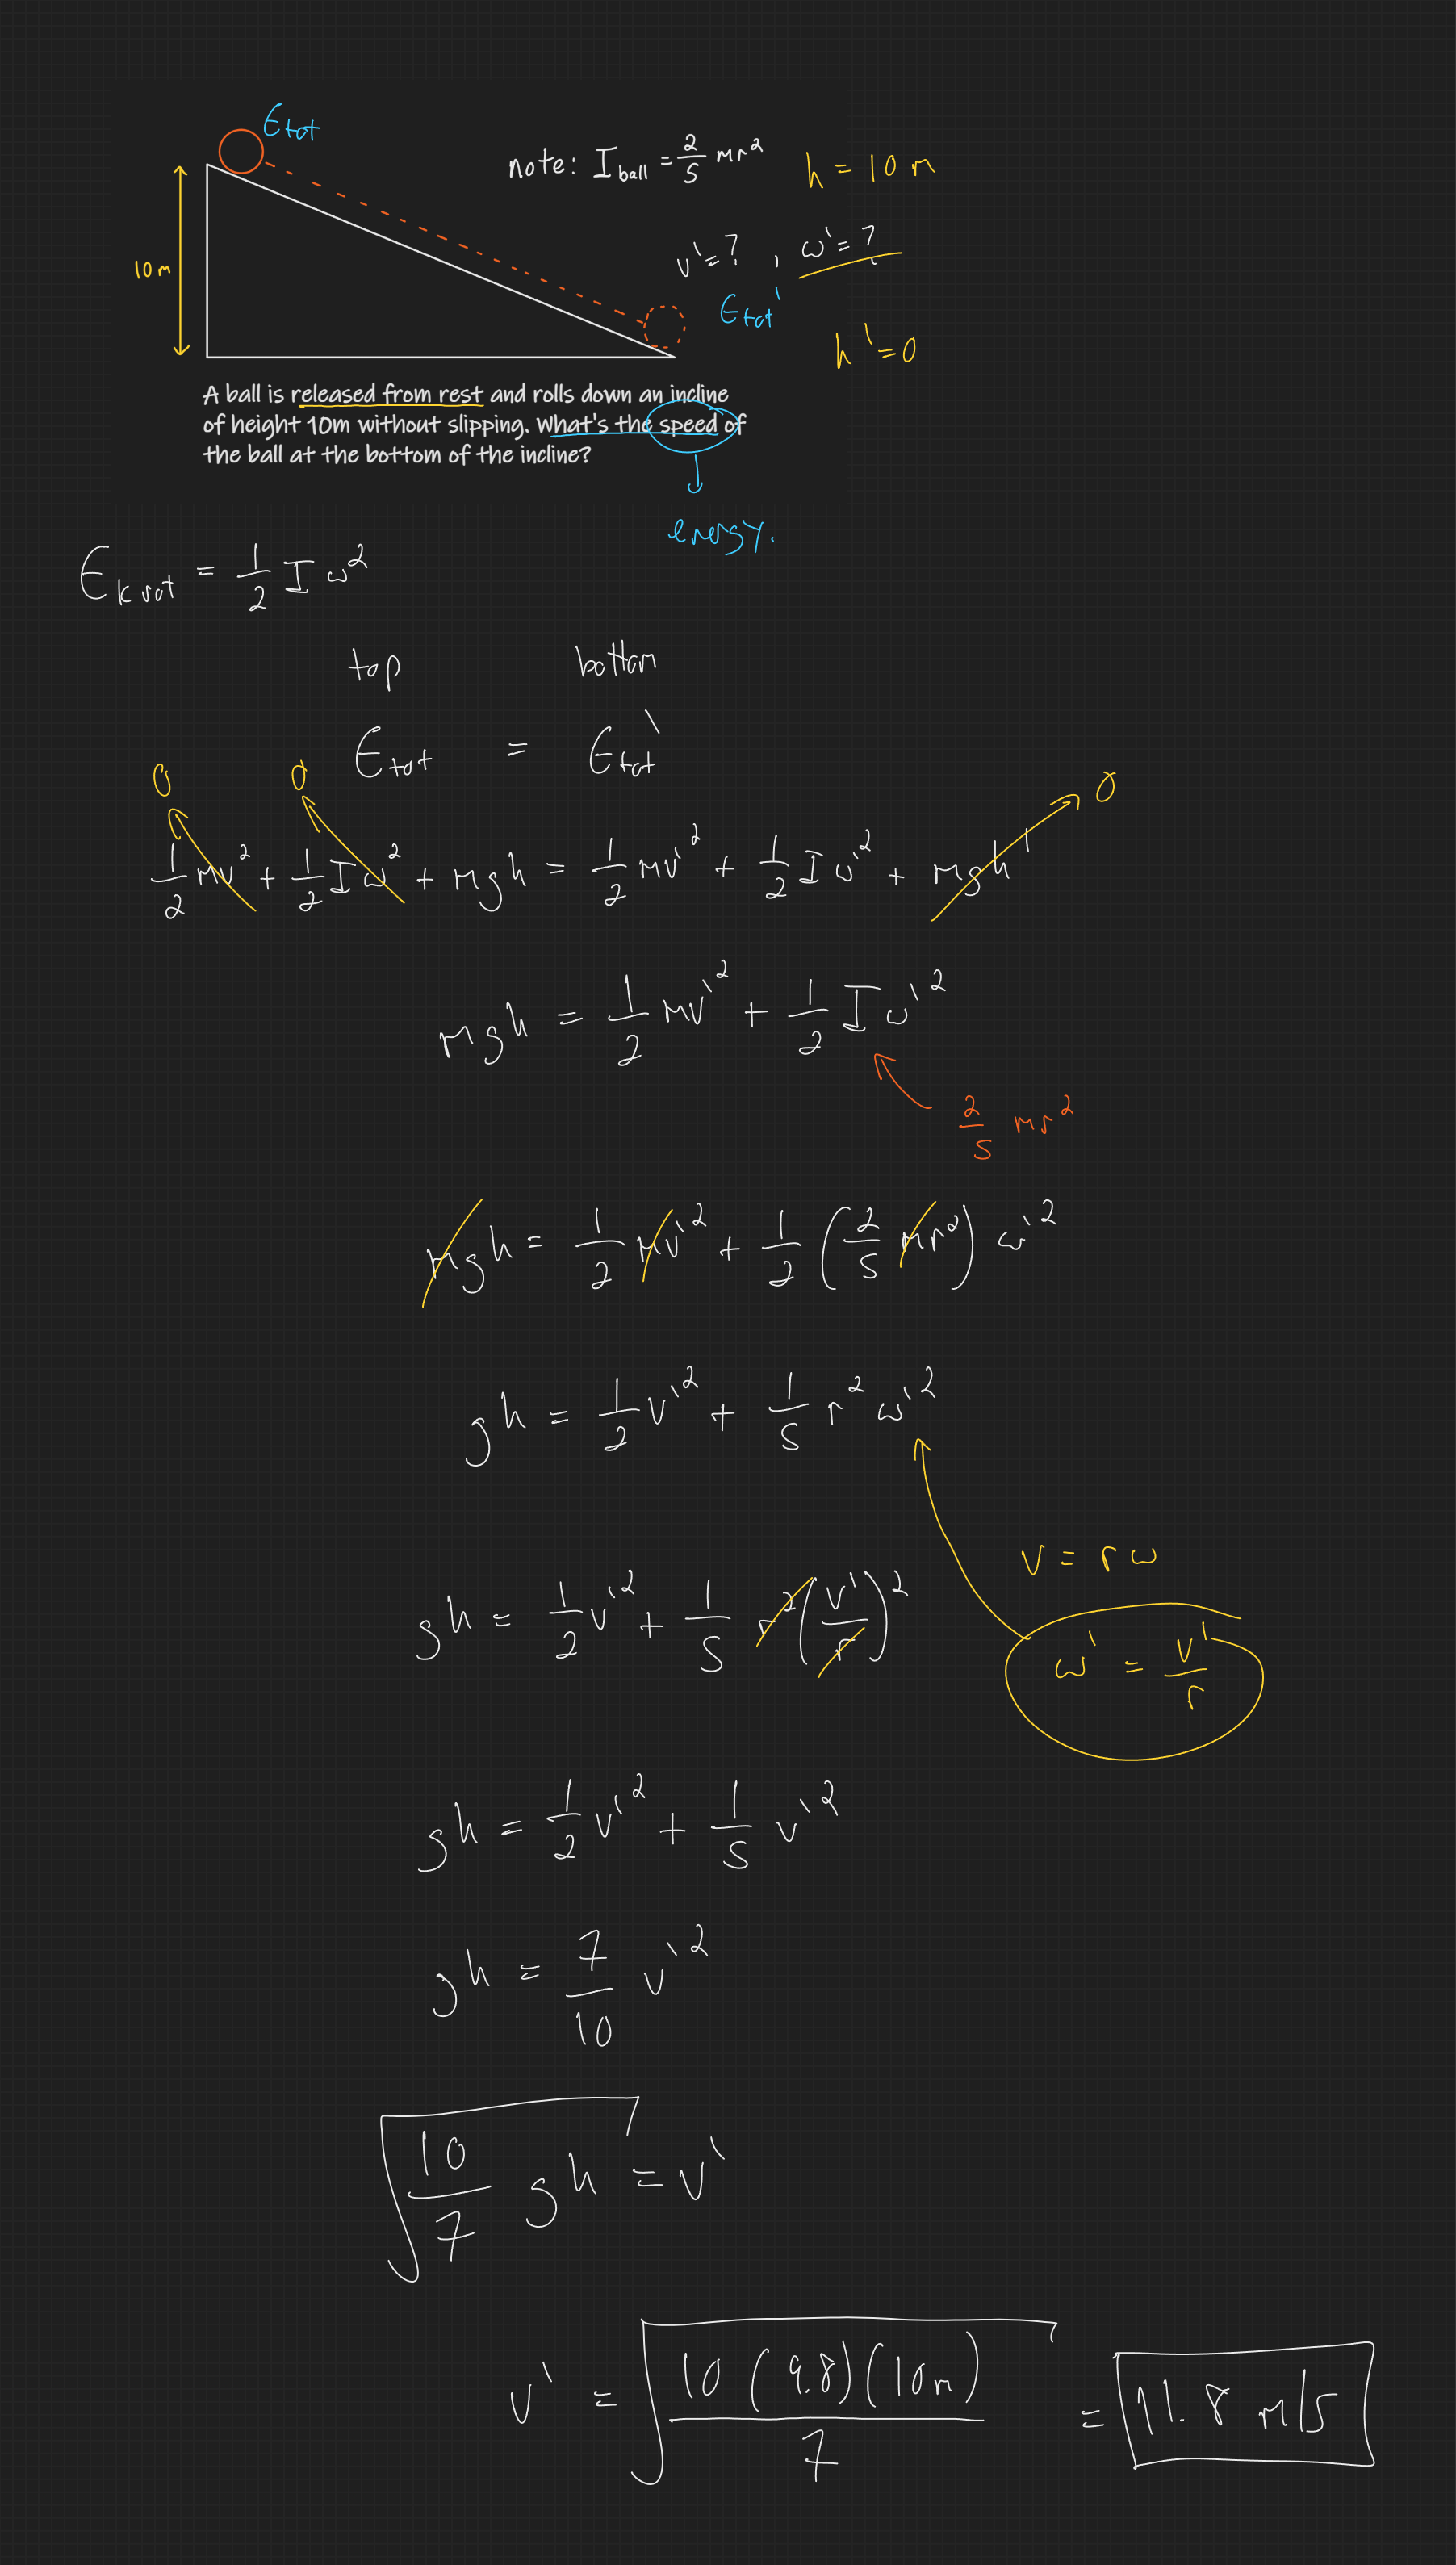 Etot
note: I ball = 2/5 mr²
h = 10 m
10m
v' = ? , ω' = ?
Etot'
h' = 0
A ball is released from rest and rolls down an incline
of height 10m without slipping. What's the speed of
the ball at the bottom of the incline?
energy.
Ek rot = 1/2 I ω²
top bottom
Etot = Etot'
0 0 0
1/2 mv² + 1/2 I ω² + mgh = 1/2 mv'² + 1/2 I ω'² + mgh'
mgh = 1/2 mv'² + 1/2 I ω'²
2/5 mr²
mgh = 1/2 mv'² + 1/2 (2/5 mr²) ω'²
gh = 1/2 v'² + 1/5 r² ω'²
v = r ω
gh = 1/2 v'² + 1/5 r² (v'/r)²
ω' = v'/r
gh = 1/2 v'² + 1/5 v'²
gh = 7/10 v'²
√(10/7 gh) = v'
v' = √(10 (9.8)(10m)/7) = 11.8 m/s